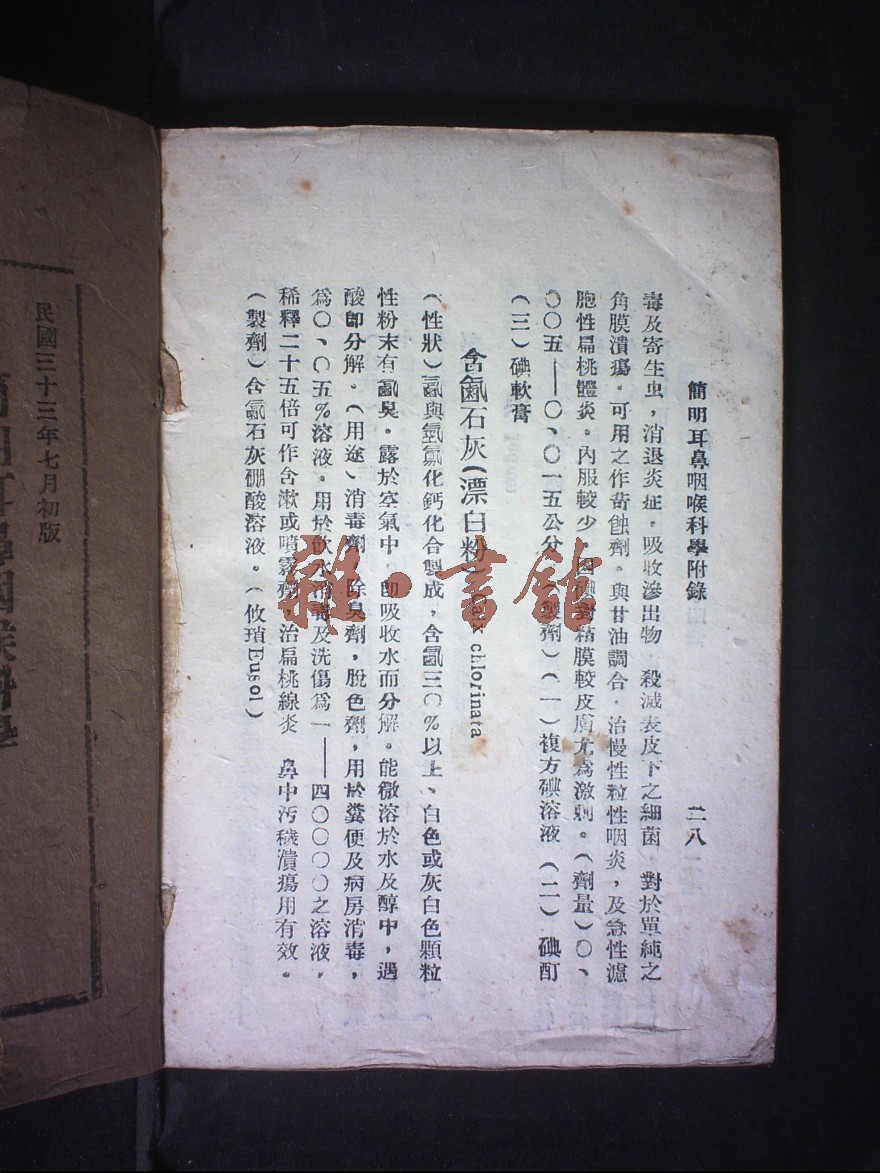 簡明耳鼻咽喉科學附錄
二八
毒及寄生虫，消退炎症。吸收滲出物 殺滅表皮下之細菌 對於單純之
角膜潰瘍。可用之作苛蝕劑。與甘油調合．治慢性粒性咽炎，及急性濾
胞性扁桃體炎。內服較少。因碘對粘膜較皮膚尤為激刺。（劑量）〇、
〇〇五——〇、〇一五公分（製劑）（一）複方碘溶液（二）碘酊
（三）碘軟膏
含氯石灰（漂白粉）Calx chlorinata
（性狀）氯與氫氧化鈣化合製成，含氯三〇％以上、白色或灰白色顆粒
性粉末有氯臭。露於空氣中．即吸收水而分解。能微溶於水及醇中，遇
酸卽分解。（用途）消毒劑，除臭劑，脫色劑，用於糞便及病房消毒，
爲〇、〇五％溶液。用於飲水消毒及洗傷爲一——四〇〇〇〇之溶液，
稀釋二十五倍可作含漱或噴霧劑，治扁桃線炎 鼻中汚穢潰瘍用有效。
（製劑）含氯石灰硼酸溶液。（攸瑣Eusol）
民國三十三年七月初版
簡明耳鼻咽喉科學
雜·書館